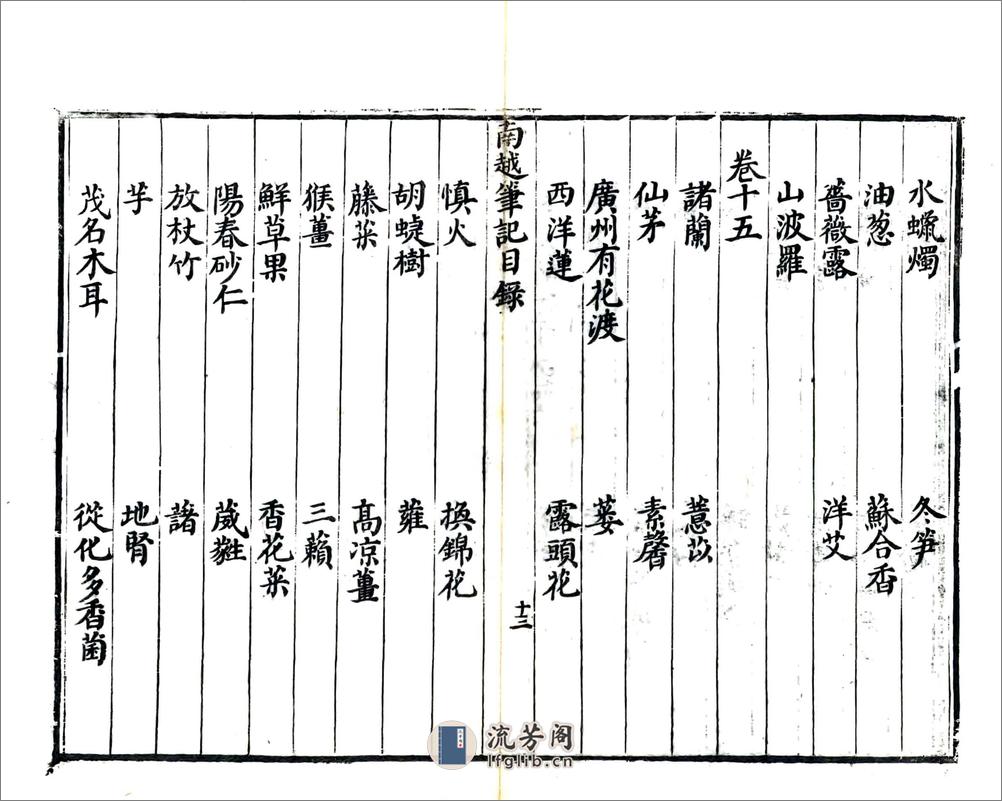 水蠟燭 冬笋
油葱 蘇合香
薔薇露 洋艾
山波羅
卷十五
諸蘭 薏苡
仙茅 素馨
廣州有花渡 蔞
西洋蓮 露頭花
南越筆記目錄 十三
慎火 換錦花
胡蜨樹 蕹
藤菜 高凉薑
猴薑 三賴
鮮草果 香花菜
陽春砂仁 葳蕤
放杖竹 藷
芋 地腎
茂名木耳 從化多香菌
流芳阁
lfglib.cn